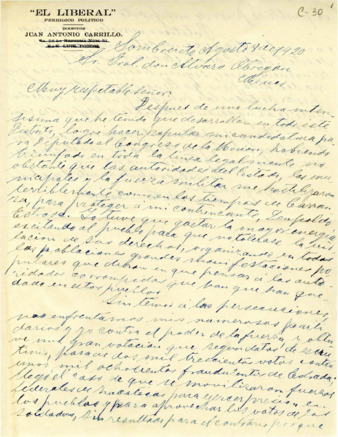 "EL LIBERAL"
PERIODICO POLITICO
DIRECTOR
JUAN ANTONIO CARRILLO.
C-30
Sombrerete, Agosto 8 de 1920
Sr. Gral. don Alvaro Obregon
Muy respetable señor:
Despues de una lucha inten-
sisima que he tenido que desarrollar en todo este
Distrito, logré hacer popular mi candidatura pa-
ra Diputado al Congreso de la Union, habiendo
triunfado en toda la linea legalmente, no
obstante que las autoridades del Estado, las mu-
nicipales y la fuerza militar me hostilizaron
terriblemente, como en los tiempos de Carran-
za, para proteger á mi contrincante, Leopoldo
Estrada. Yo tuve que gastar la mayor energia
escitando al pueblo para que
lacion de sus derechos, organizando en todas
las poblaciones grandes manifestaciones po-
pulares que dieron en que pensar á las auto-
ridades corrompidas que aun que han que-
dado en estos pueblos.
Sin temor á las persecuciones,
nos enfrentamos mis numerosos parti-
darios y yo contra el poder de la fuerza, y obtu-
ve una gran votacion que segun datos
pasa de dos mil trecientos votos contra
unos mil ochocientos fraudulentos de Estrada;
llegó el caso de que se movilizaran fuerzas
federales de Zacatecas para ejercer presion en
los pueblos y para aprovechar los votos de los
soldados, sin resultado para el contrario porque